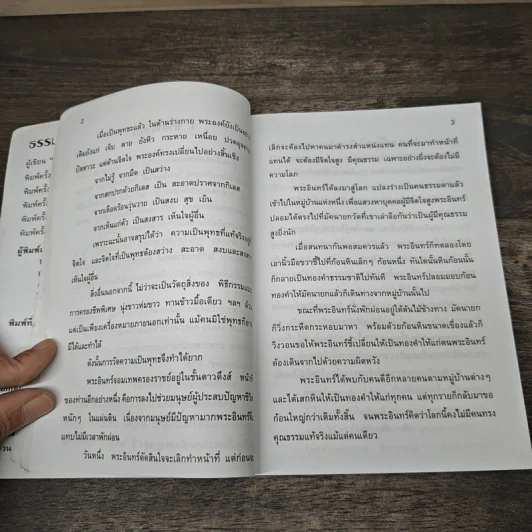 ธรรม
ผู้เขียน
พิมพ์ครั้ง
พิมพ์ครั้ง
พิมพ์ครั้ง
พิมพ์ครั้ง
ผู้พิมพ์
พิมพ์ที่
2
เมื่อเป็นพุทธะแล้ว ในด้านร่างกาย พระองค์ยังเป็น
เดิมยังแก่ เจ็บ ตาย ยังหิว กระหาย เหนื่อย ปวด
ปัสสาวะ แต่ด้านจิตใจ พระองค์ทรงเปลี่ยนไปอย่างสิ้นเชิง
จากไม่รู้ จากมืด เป็นสว่าง
จากสกปรกด้วยกิเลส เป็น สะอาดปราศจากกิเลส
จากเดือดร้อนวุ่นวาย เป็นสงบ สุข เย็น
จากเห็นแก่ตัว เป็นสงสาร เห็นใจผู้อื่น
เพราะฉะนั้นอาจสรุปได้ว่า ความเป็นพุทธที่แท้จริงอยู่ที่
จิตใจ และจิตใจที่เป็นพุทธต้องสว่าง สะอาด สงบและ
เห็นใจผู้อื่น
สิ่งอื่นนอกจากนี้ ไม่ว่าจะเป็นวัตถุสิ่งของ พิธีกรรม
การครองชีพพิเศษ นุ่งขาวห่มขาว ทานข้าวมื้อเดียว ฯลฯ ล้วน
แต่เป็นเพียงเครื่องหมายภายนอกเท่านั้น แม้คนมิใช่พุทธก็อาจ
มีได้และทำได้
ดังนั้นการวัดความเป็นพุทธจึงทำได้ยาก
พระอินทร์จอมเทพครองราชย์อยู่ในชั้นดาวดึงส์ หน้าที่
ของท่านอีกอย่างหนึ่ง คือการลงไปช่วยมนุษย์ผู้ประสบปัญหาชีวิต
หนักๆ ในแผ่นดิน เนื่องจากมนุษย์มีปัญหามากพระอินทร์จึง
แทบไม่มีเวลาพักผ่อน
วันหนึ่ง พระอินทร์ตัดสินใจจะเลิกทำหน้าที่ แต่ก่อนจะ
3
เลิกจะต้องไปหาคนมาดำรงตำแหน่งแทน คนที่จะมาทำหน้าที่
แทนได้ จะต้องมีจิตใจสูง มีคุณธรรม เฉพาะอย่างยิ่งจะต้องไม่มี
ความโลภ
พระอินทร์ได้ลงมาสู่โลก แปลงร่างเป็นคนธรรมดาแล้ว
เข้าไปในหมู่บ้านแห่งหนึ่ง เพื่อแสวงหาบุคคลผู้มีจิตใจสูงพระอินทร์
ปลอมได้ตรงไปที่มัคนายกวัดที่เขาเล่าลือกันว่าเป็นผู้มีคุณธรรม
สูงยิ่งนัก
เมื่อสนทนากันพอสมควรแล้ว พระอินทร์ก็ทดลองโดย
เอานิ้วมือขวาชี้ไปที่ก้อนหินเล็กๆ ก้อนหนึ่ง ทันใดนั้นหินก้อนนั้น
ก็กลายเป็นทองคำธรรมชาติไปทันที พระอินทร์ปลอมมอบก้อน
ทองคำให้มัคนายกแล้วก็เดินทางจากหมู่บ้านนั้นไป
ขณะที่พระอินทร์นั่งพักผ่อนอยู่ใต้ต้นไม้ข้างทาง มัคนายก
ก็วิ่งกระหืดกระหอบมาหา พร้อมด้วยก้อนหินขนาดเขื่องแล้วก็
วิงวอนขอให้พระอินทร์ชี้เปลี่ยนให้เป็นทองคำให้แก่ตนพระอินทร์
ต้องเดินจากไปด้วยความผิดหวัง
พระอินทร์ได้พบกับคนดีอีกหลายคนตามหมู่บ้านต่างๆ
และได้เสกหินให้เป็นทองคำให้แก่ทุกคน แต่ทุกรายก็กลับมาขอ
ก้อนใหญ่กว่าเดิมทั้งสิ้น จนพระอินทร์คิดว่าโลกนี้คงไม่มีคนทรง
คุณธรรมแท้จริงแม้แต่คนเดียว